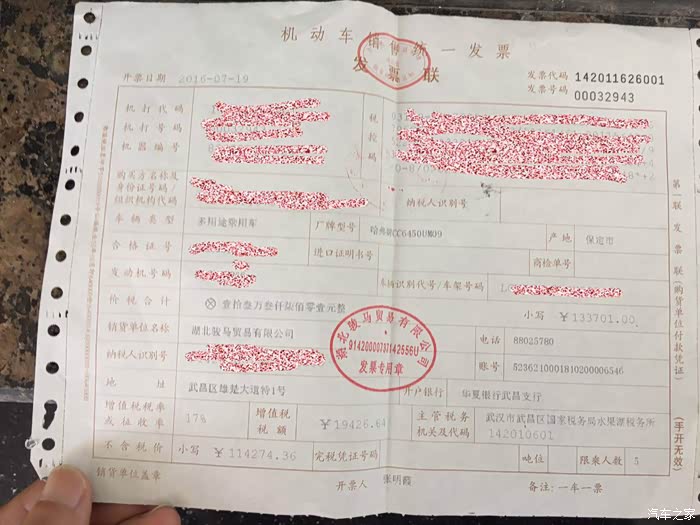 机动车销售统一发票
发票联
开票日期 2016-07-19
发票代码 142011626001
发票号码 00032943
机打代码
机打号码
机器编号
税控码
购买方名称及
身份证号码/
组织机构代码
纳税人识别号
车辆类型 多用途乘用车 厂牌型号 哈弗牌CC6450UM09 产地 保定市
合格证号 进口证明书号 商检单号
发动机号码 车辆识别代号/车架号码
价税合计 ⊗壹拾叁万叁仟柒佰零壹元整 小写 ￥133701.00
销货单位名称 湖北骏马贸易有限公司 电话 88025780
纳税人识别号 账号 5236210001810200006546
地址 武昌区雄楚大道特1号 开户银行 华夏银行武昌支行
增值税税率
或征收率
17%
增值税
税额
￥19426.64
主管税务
机关及代码
武汉市武昌区国家税务局水果湖税务所
142010601
不含税价 小写 ￥114274.36 完税凭证号码 吨位 限乘人数 5
销货单位盖章 开票人 张明霞 备注：一车一票
第一联 发票联（购货单位付款凭证）
（手开无效）
湖北骏马贸易有限公司
发票专用章
汽车之家